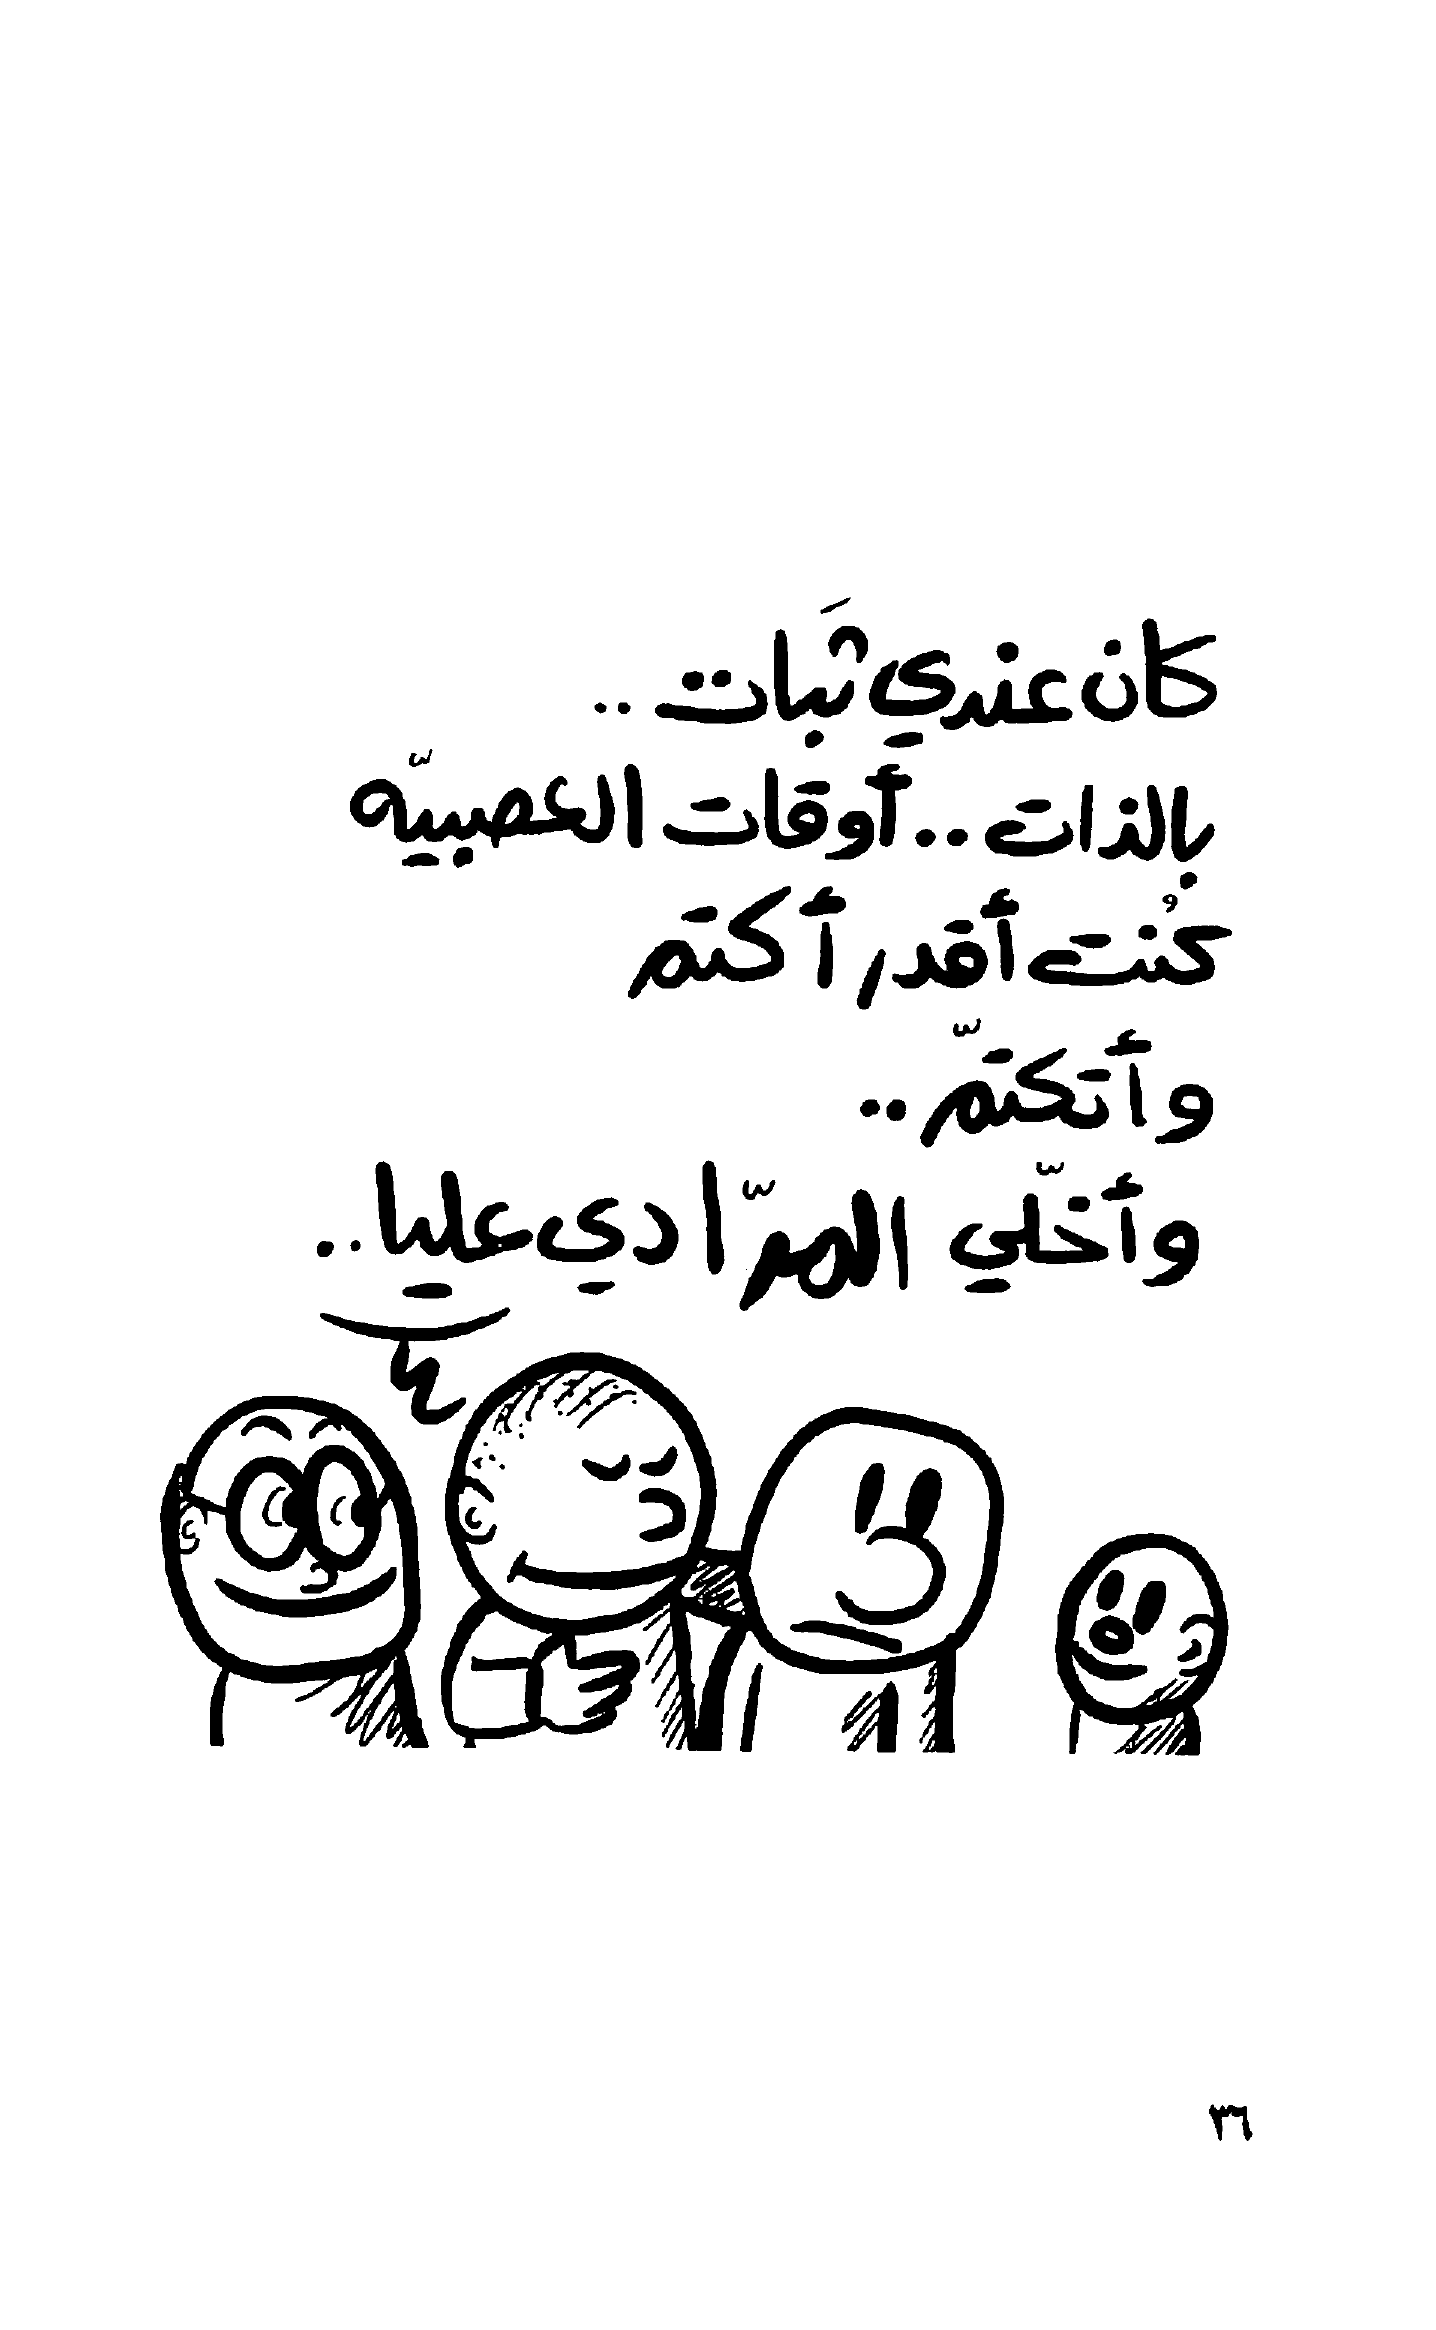 كان عندي ثَبات ..
بالذات .. أوقات العصبيّه
كُنت أقدر أكتم
وأتكتمّ ..
وأخلّي المرّادي عليا ..
٣٦